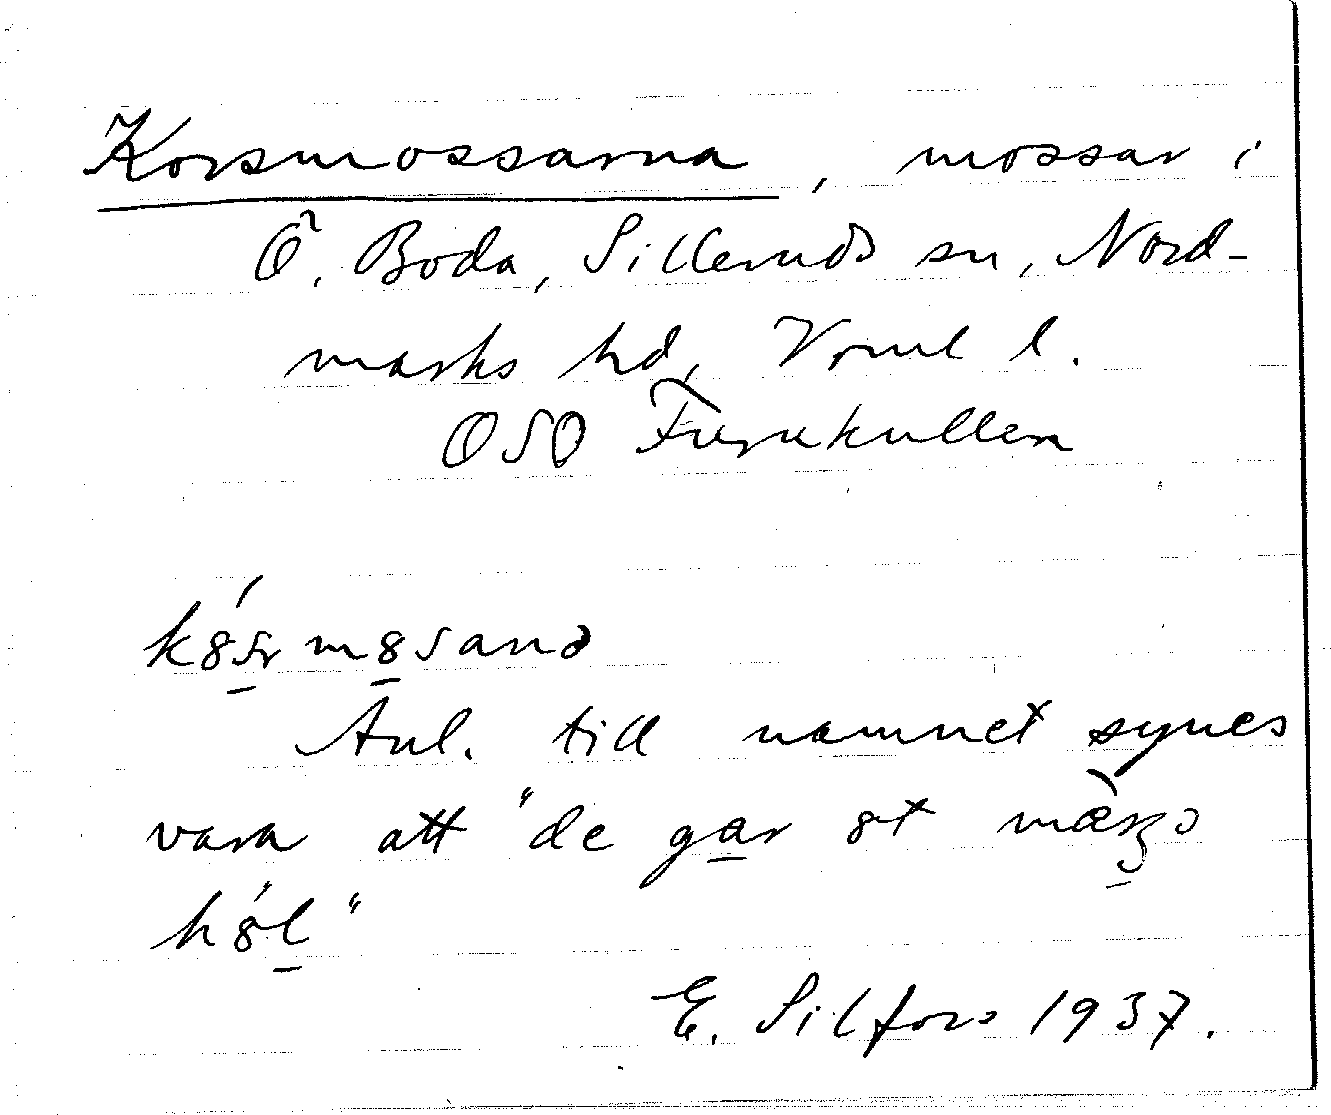 Korsmossarna, mossar i
Ö. Boda, Silleruds sn, Nord-
marks hd, Vrml l.
OSO Furukullen
mossarna
Anl. till namnet synes
vara att "de gar åt
E. Silfors 1937.